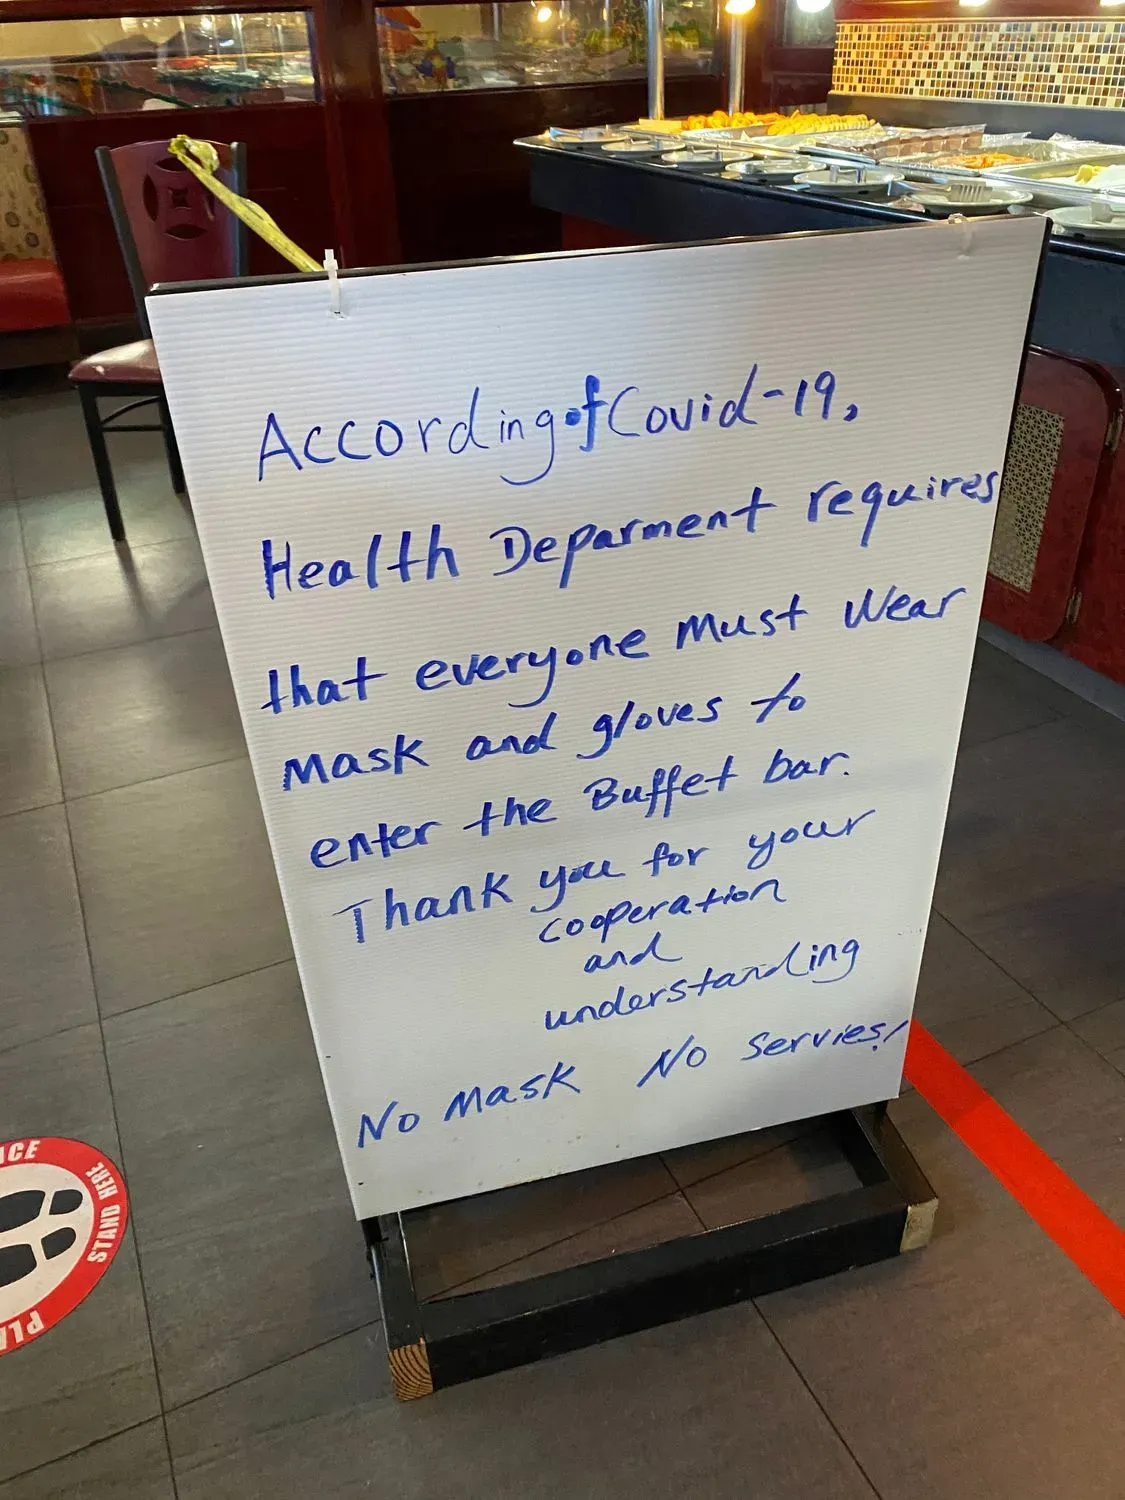 According of Covid-19,
Health Deparment requires
that everyone Must Wear
Mask and gloves to
enter the Buffet bar.
Thank you for your
cooperation
and
understanding
No Mask No Servies!
STAND HERE